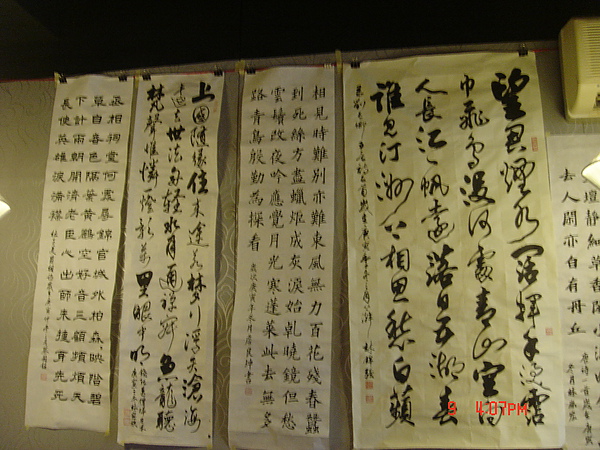 壇
去人間亦自有丹丘
望君煙水闊揮手淚霑
巾飛鳥沒何處青山空向
人長江一帆遠落日五湖春
誰見汀洲上相思愁白蘋
相見時難別亦難東風無力百花殘春蠶
到死絲方盡蠟炬成灰淚始乾曉鏡但愁
雲鬢改夜吟應覺月光寒蓬萊此去無多
路青鳥殷勤為探看
上國隨緣住來途若夢行浮天滄海
遠去世法舟輕水月通禪寂魚龍聽
梵聲惟憐一燈影萬里眼中明
丞相祠堂何處尋錦官城外柏森映階碧
草自春色隔葉黃鸝空好音三顧頻煩天
下計兩朝開濟老臣心出師未捷身先死
長使英雄淚滿襟
9 4:07PM